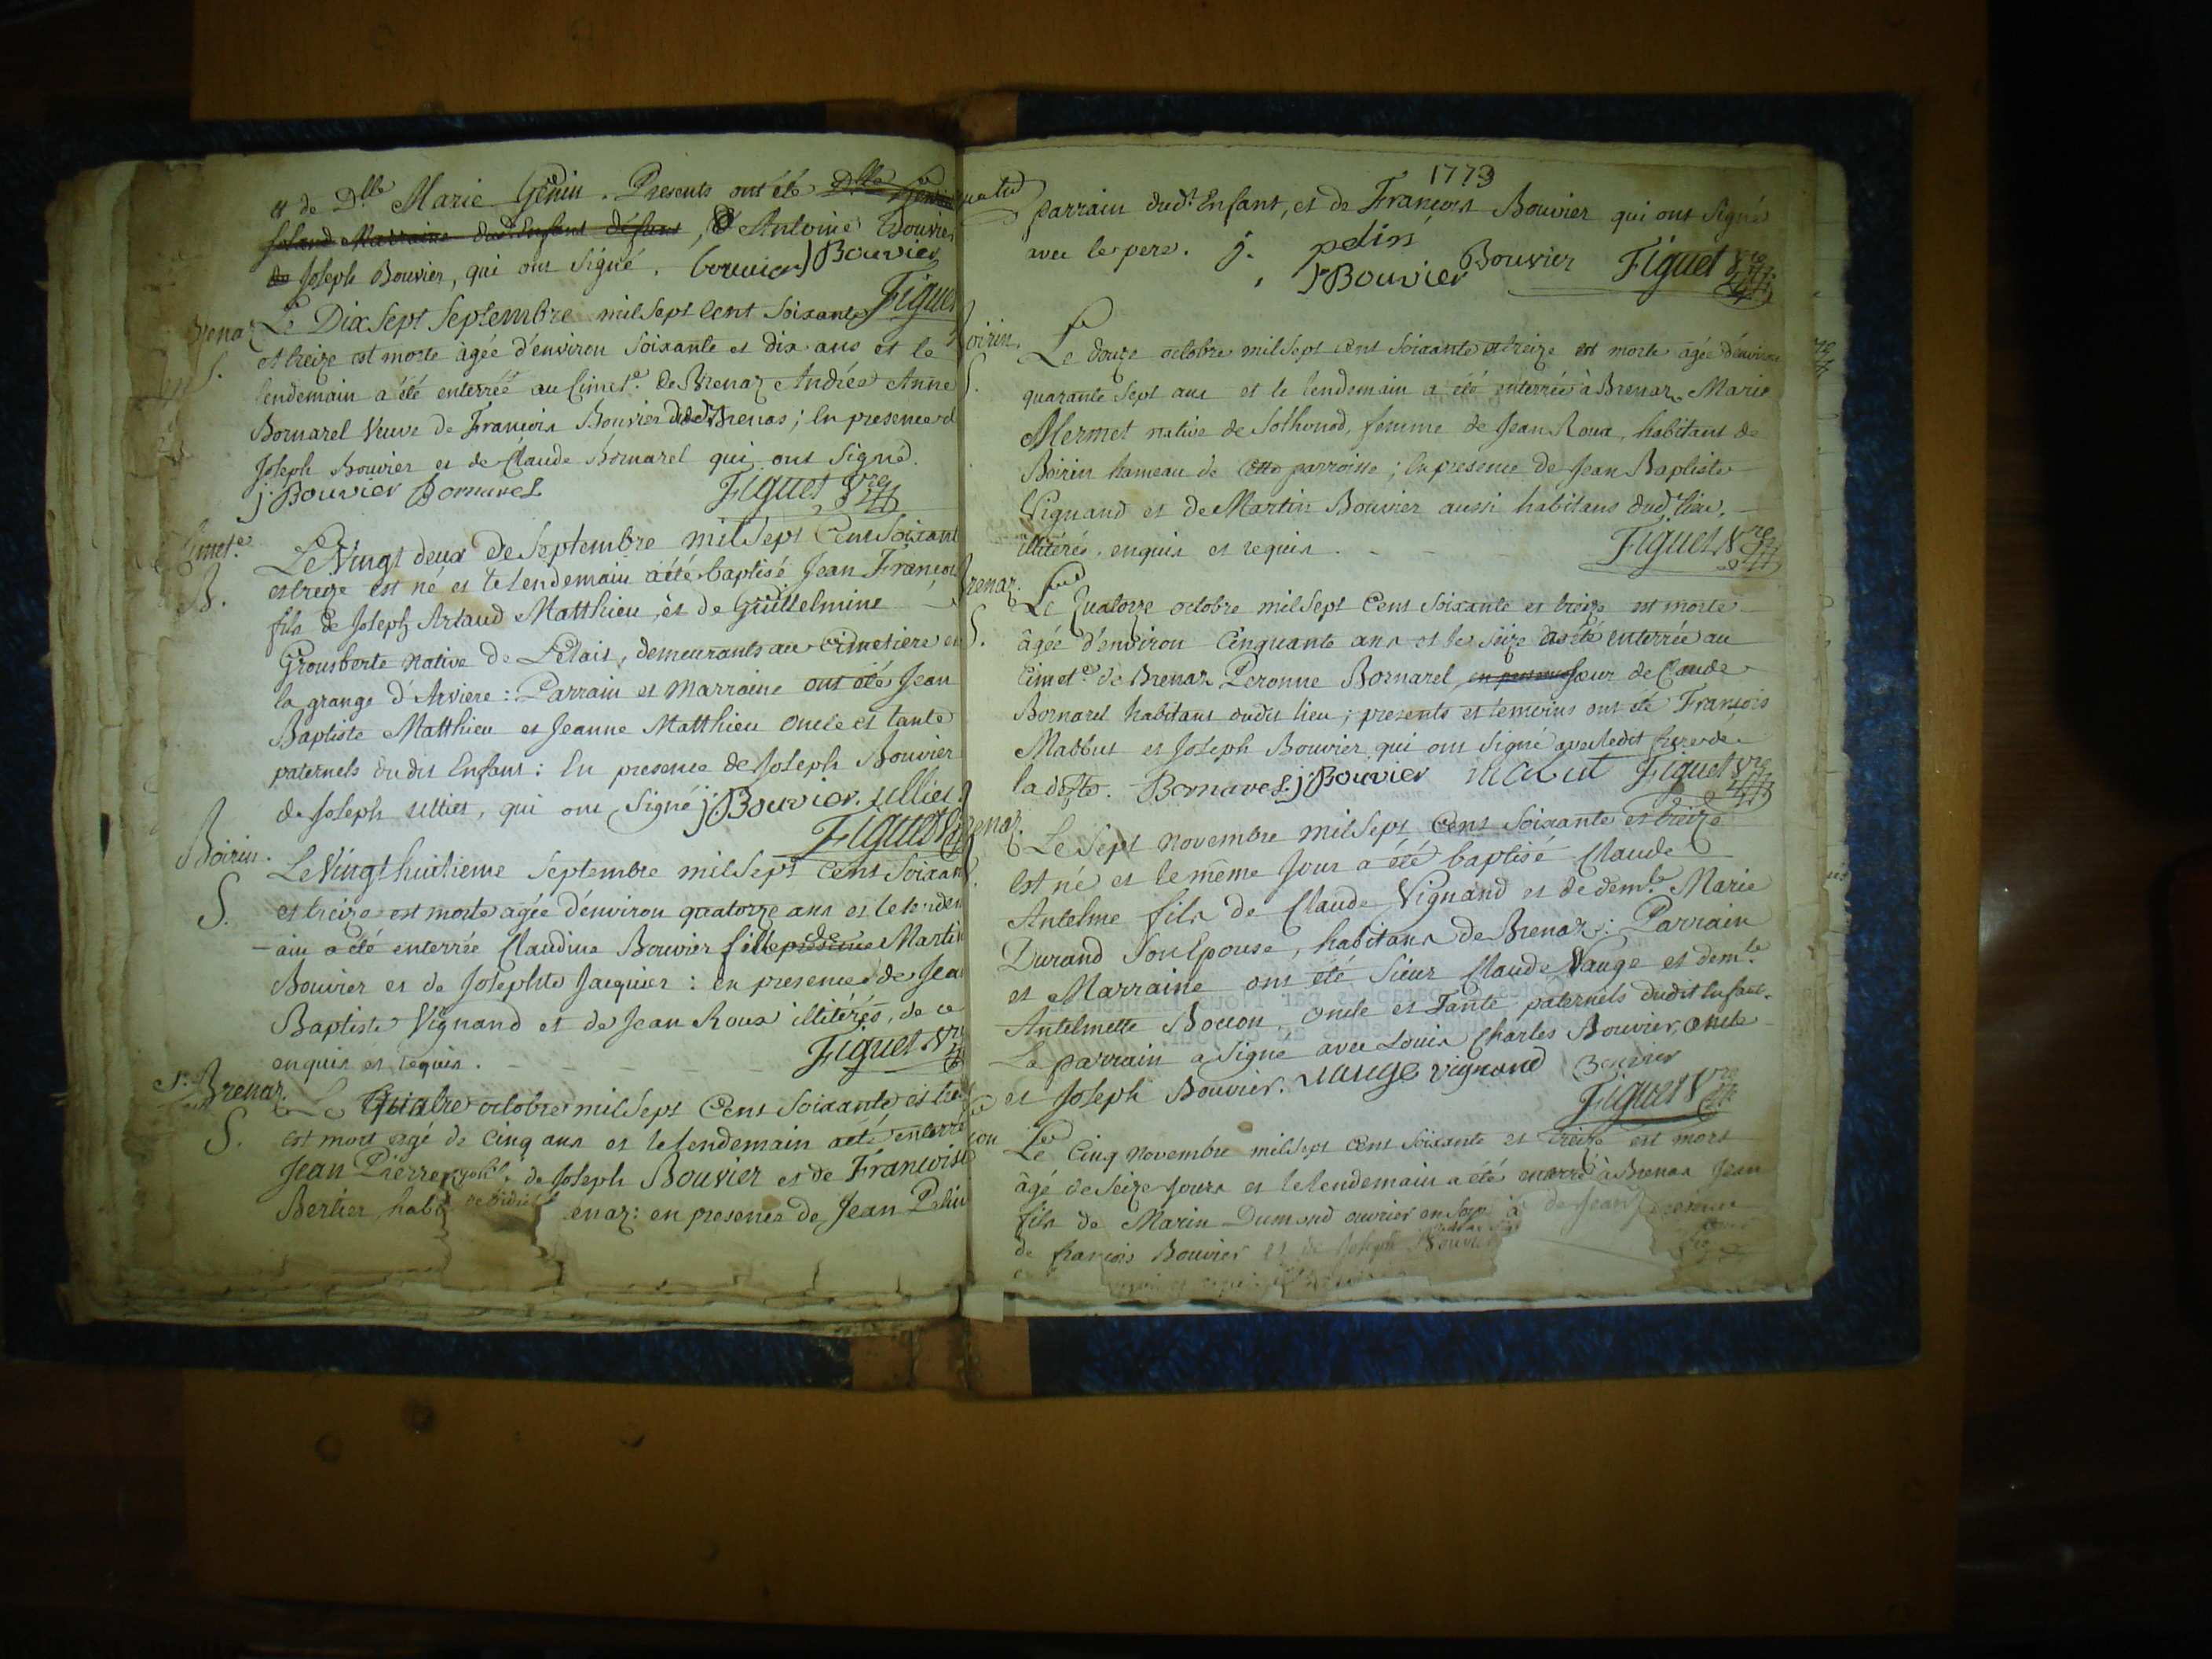 et de Dlle Marie Genin. Presents ont été Dlle
Marraine dud. Enfant, d'Antoine Bouvier
de Joseph Bouvier, qui ont signé. bouvier J Bouvier
Figuet
Brenaz Le Dix sept septembre mil sept cent soixante
S. et treize est morte âgée d'environ soixante et dix ans et le
lendemain a été enterrée au Cimete. de Brenaz Andrée Anne
Bornarel Veuve de François Bouvier dud. Brenas; En presence d
Joseph Bouvier et de Claude Bornarel qui ont signé.
j. Bouvier Bornarel Figuet Vre
Cimete. Le Vingt deux de septembre mil sept Cent soixant
B. et treize est né et le lendemain a été baptisé Jean François
fils de Joseph Artaud Matthieu, et de Guillelmine
Grousberte native de Lelais, demeurants au cimetiere en
la grange d'Arviere: Parrain et Marraine ont été Jean
Baptiste Matthieu et Jeanne Matthieu oncle et tante
paternels dudit Enfant: En presence de Joseph Bouvier
de Joseph ullier, qui ont signé j. Bouvier. ullier.
Figuet
Boirin. Le Vingt huitieme septembre mil sept Cent soixant
S. et treize est morte agée d'environ quatorze ans et le lendem
- ain a été enterrée Claudine Bouvier fille de Martin
Bouvier et de Josephte Jacquier: en presence de Jea
Baptiste Vignand et de Jean Roux illitérés, de ce
enquis et requis. Figuet Vre
Brenaz. Le Quatre octobre mil sept Cent soixante et tre
S. est mort agé de cinq ans et le lendemain a été enterré
Jean Pierre de Joseph Bouvier et de Françoise
Bertier, hab enaz: en presence de Jean Pelin
1773
parrain dud. Enfant, et de François Bouvier qui ont signé
avec le pere. j. pelin Bouvier Figuet Vre
J Bouvier
Boirin. Le douze octobre mil sept cent soixante et treize est morte âgée d'environ
S. quarante sept ans et le lendemain a été enterrée à Brenaz Marie
Mermet native de Sothonod, femme de Jean Roux, habitant de
Boirin hameau de cette parroisse; En presence de Jean Baptiste
Vignand et de Martin Bouvier aussi habitans dud. lieu,
illitérés, enquis et requis. Figuet Vre
Brenaz. Le Quatorze octobre mil sept Cent soixante et treize est morte
S. âgée d'environ Cinquante ans et le seize a été enterrée au
Cimete. de Brenaz Peronne Bornarel soeur de Claude
Bornarel habitant dudit lieu; presents et temoins ont été François
Mabbut et Joseph Bouvier qui ont signé avec ledit frere de
ladite. Bornarel. j. Bouvier Mabut Figuet Vre
Brenaz. Le Sept novembre mil sept Cent soixante et treize
est né et le même Jour a été baptisé Claude
Antelme fils de Claude Vignand et de demle. Marie
Durand son Epouse, habitans de Brenaz: Parrain
et Marraine ont été sieur Claude Nauge et demle.
Antelmette Bouon, oncle et Tante paternels dudit Enfant.
Le parrain a signé avec Louis Charles Bouvier, oncle
et Joseph Bouvier. nauge vignand Bouvier
Figuet Vre
Le Cinq Novembre mil sept cent soixante et treize est mort
âgé de seize jours et le lendemain a été enterré à Brenas Jean
fils de Marin Dumond ouvrier en à de Jean
de françois Bouvier et de Joseph Bouvier